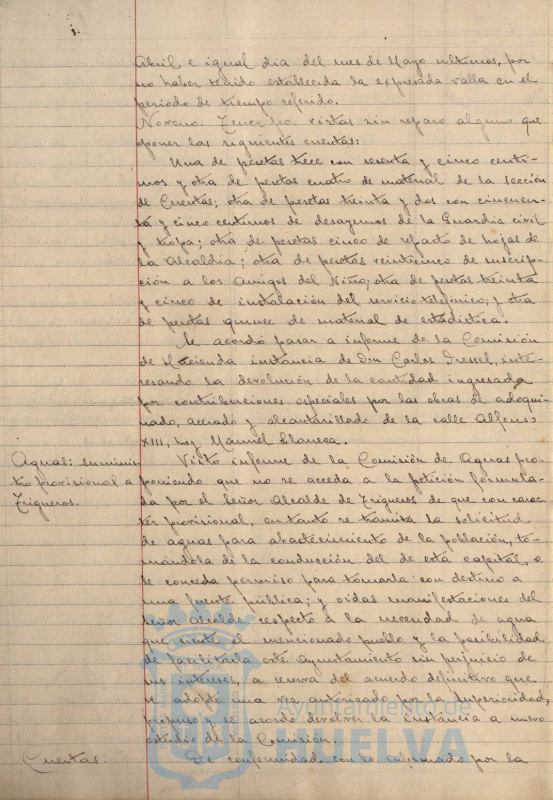 Abril e igual dia del mes de Mayo ultimos, por
no haber tenido establecida la expresada valla en el
periodo de tiempo referido.
Noveno. Tener por vistas sin reparo alguno que
oponer las siguientes cuentas:
Una de pesetas trece con sesenta y cinco centi-
mos y otra de pesetas cuatro de material de la sección
de Cuentas; otra de pesetas treinta y dos con cincuen-
ta y cinco centimos de desayunos de la Guardia civil
y tropa; otra de pesetas cinco de reparto de hojas de
la Alcaldia; otra de pesetas veinticinco de suscrip-
ción a los Amigos del Niño; otra de pesetas treinta
y cinco de instalación del servicio telefonico; y otra
de pesetas quince de material de estadistica.
Se acordó pasar a informe de la Comisión
de Hacienda instancia de Don Carlos Dressel, inte-
resando la devolución de la cantidad ingresada
por contribuciones especiales por las obras de adoqui-
nado, acerado y alcantarillado de la calle Alfonso
XIII, hoy Manuel Llaneza.
Aguas: suminis-
tro provisional a
Trigueros.
Visto informe de la Comisión de Aguas pro-
poniendo que no se acceda a la petición formula-
da por el Señor Alcalde de Trigueros de que con carac-
ter provisional, en tanto se tramita la solicitud
de aguas para abastecimiento de la población, to-
mandola de la conducción del de esta capital, o
se conceda permiso para tomarla con destino a
una fuente pública; y oidas manifestaciones del
Señor Alcalde respecto a la necesidad de agua
que siente el mencionado pueblo y la posibilidad
de facilitarla este Ayuntamiento sin perjuicio de
sus intereses, a reserva del acuerdo definitivo que
se adopte una vez autorizado por la Superioridad,
propuso y se acordó devolver la instancia a nuevo
estudio de la Comisión.
Cuentas.
De conformidad con lo informado por la
Ayuntamiento de
HUELVA